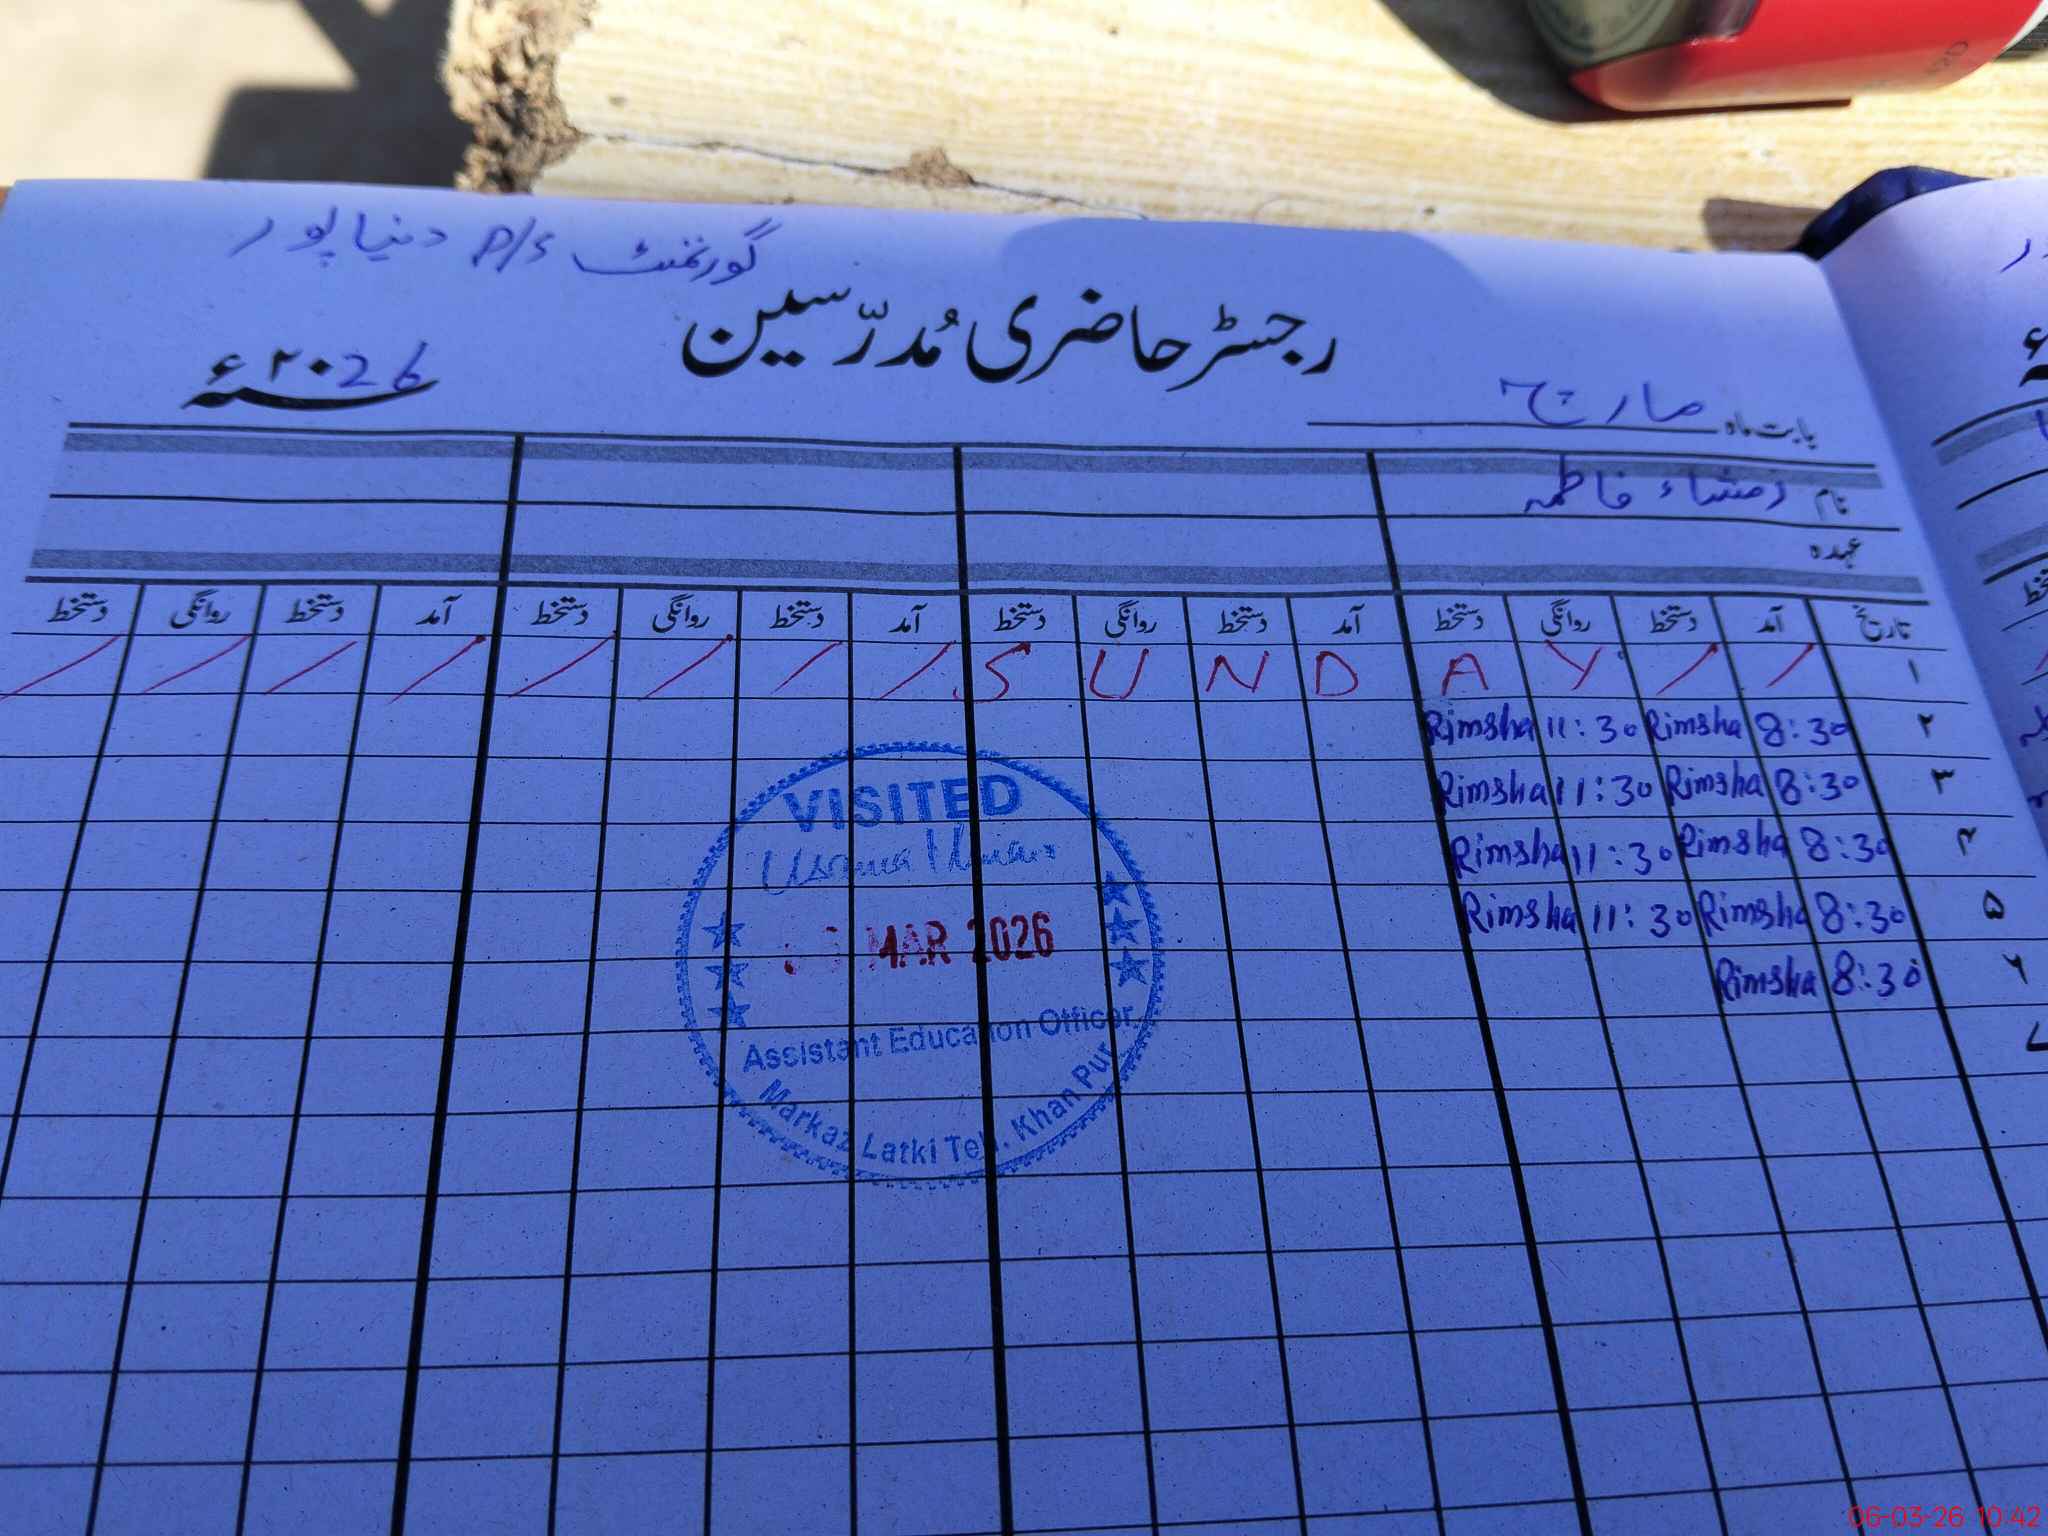 گورنمنٹ P/S دنیا پور
رجسٹر حاضری مُدرّسین
۲۰26ء
بابت ماہ مارچ
نام رمشاء فاطمہ
عہدہ
تاریخ آمد دستخط روانگی دستخط آمد دستخط روانگی دستخط آمد دستخط روانگی دستخط آمد دستخط روانگی دستخط
۱ / / S U N D A Y / / / / / / / /
۲ 8:30 Rimsha 11:30 Rimsha
۳ 8:30 Rimsha 11:30 Rimsha
۴ 8:30 Rimsha 11:30 Rimsha
۵ 8:30 Rimsha 11:30 Rimsha
۶ 8:30 Rimsha
۷
VISITED
MAR 2026
Assistant Education Officer
Markaz Latki Teh. Khan Pur
06-03-26 10:42